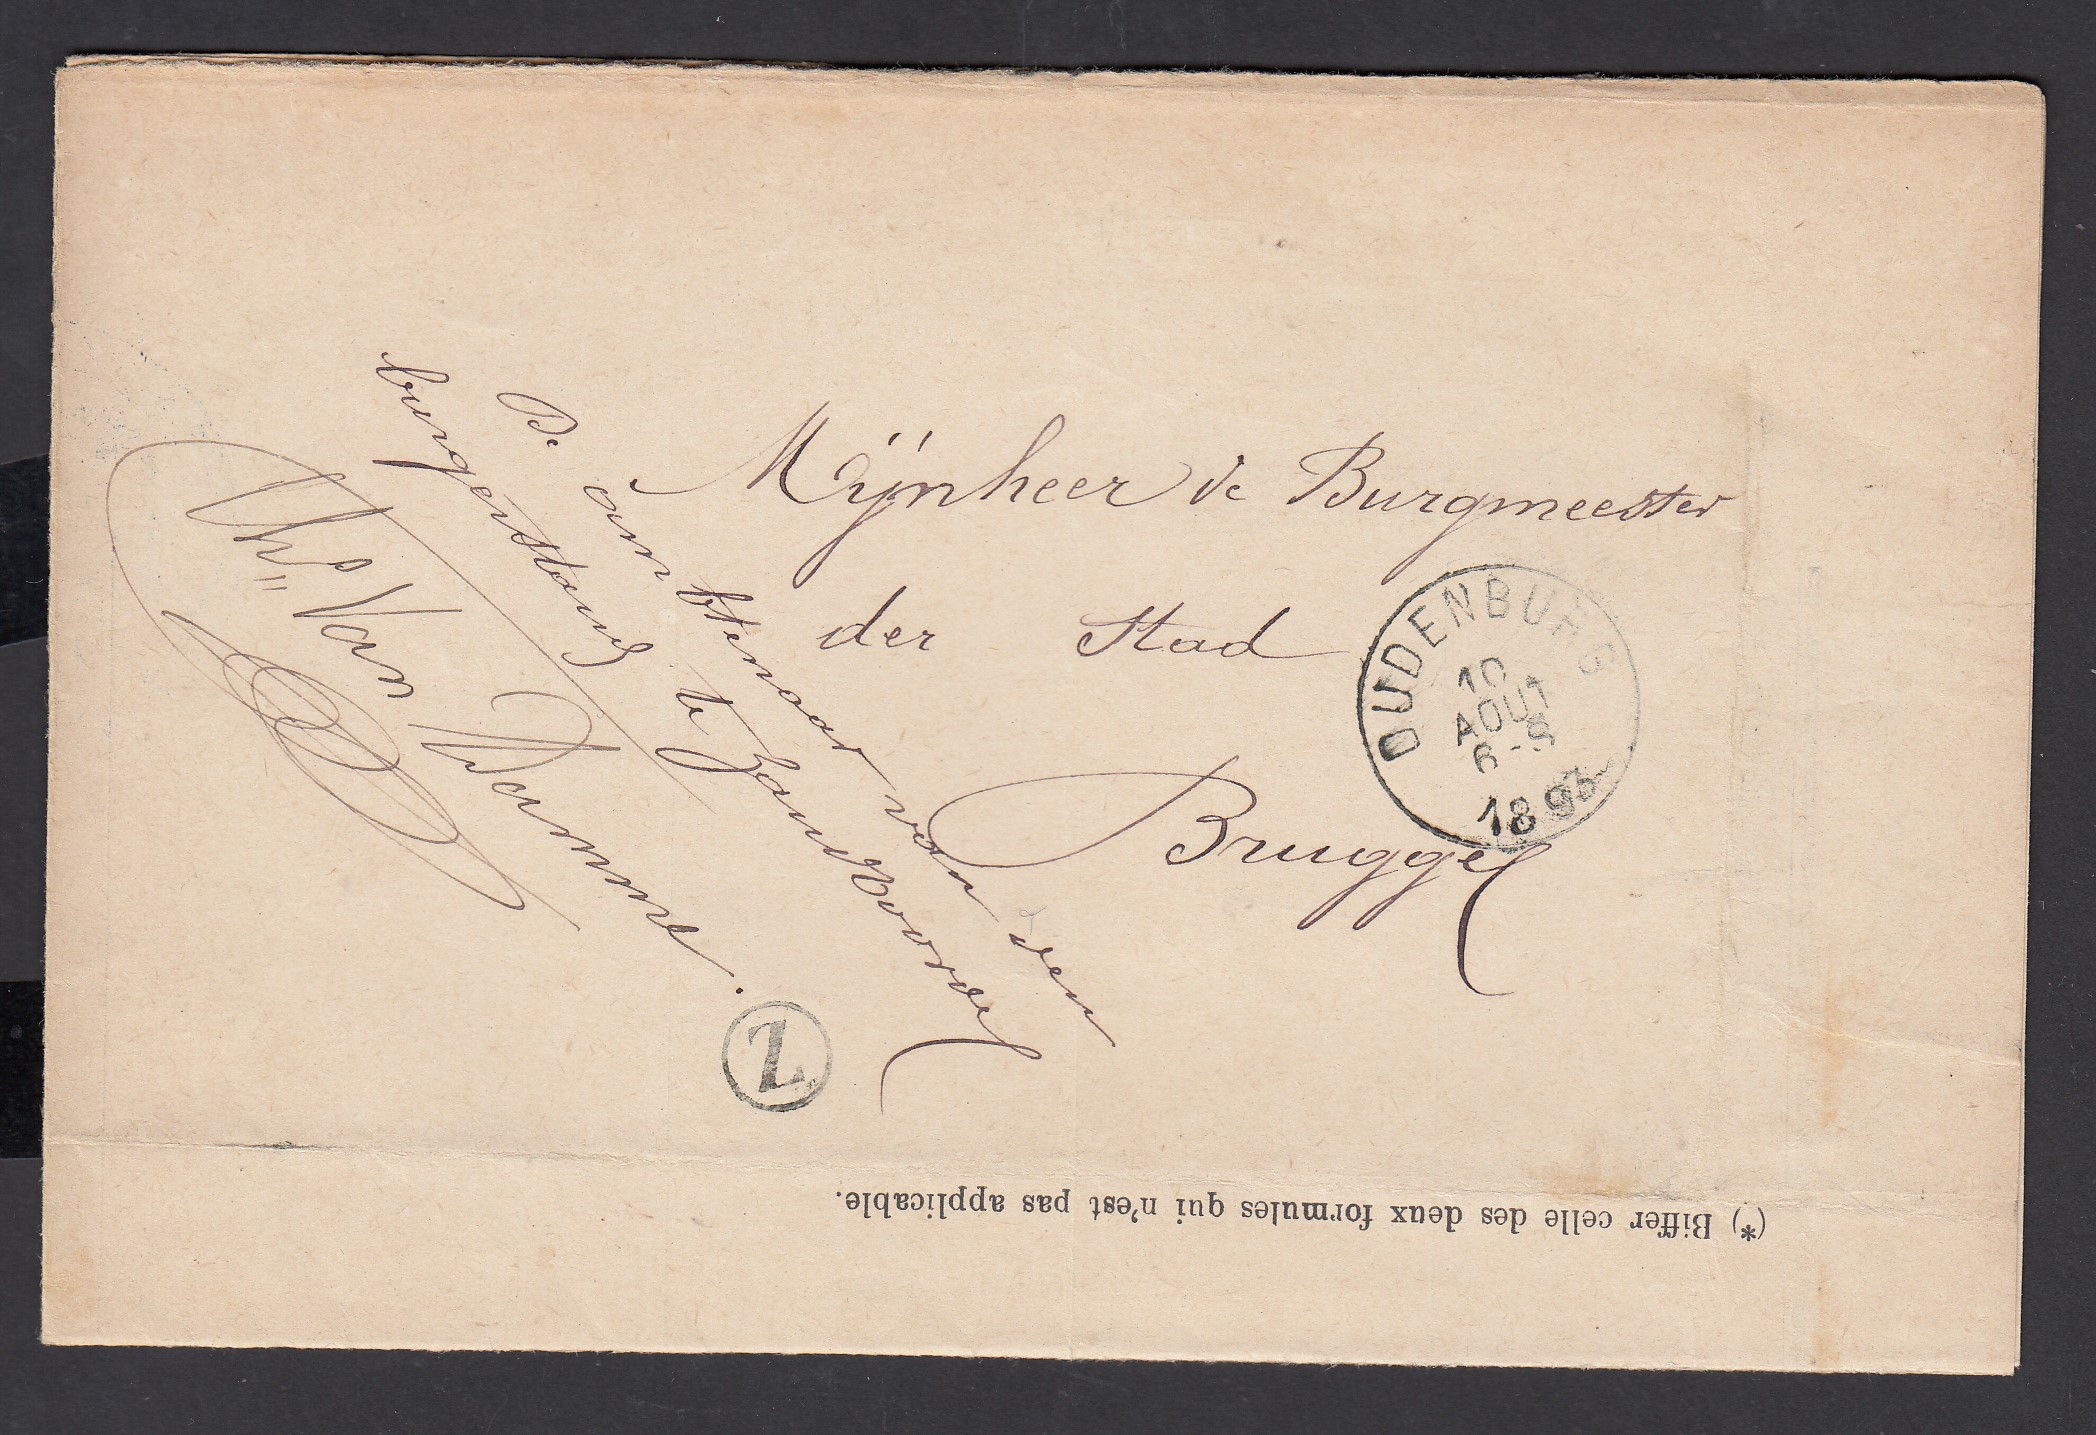 Mijnheer de Burgmeester
der Stad
Brugge
De ambtenaar van den
burgerstand te Zandvoorde
Van Damme.
OUDENBURG
10
AOUT
6-8
1893
Z
(*) Biffer celle des deux formules qui n'est pas applicable.